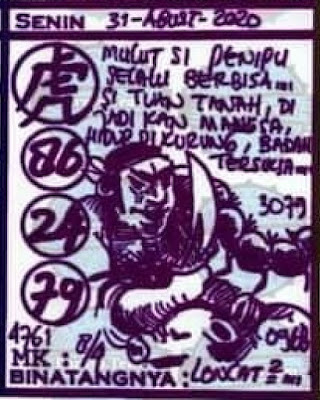 SENIN 31-AGUST-2020
MULUT SI PENIPU
SELALU BERBISA....
SI TUAN TANAH, DI
JADI KAN MANGSA,
HIDUP DI KURUNG, BADAN
TERSIKSA...
虎
86
24
79
3079
4761
0968
MK : 8/4
BINATANGNYA : LONCAT 2